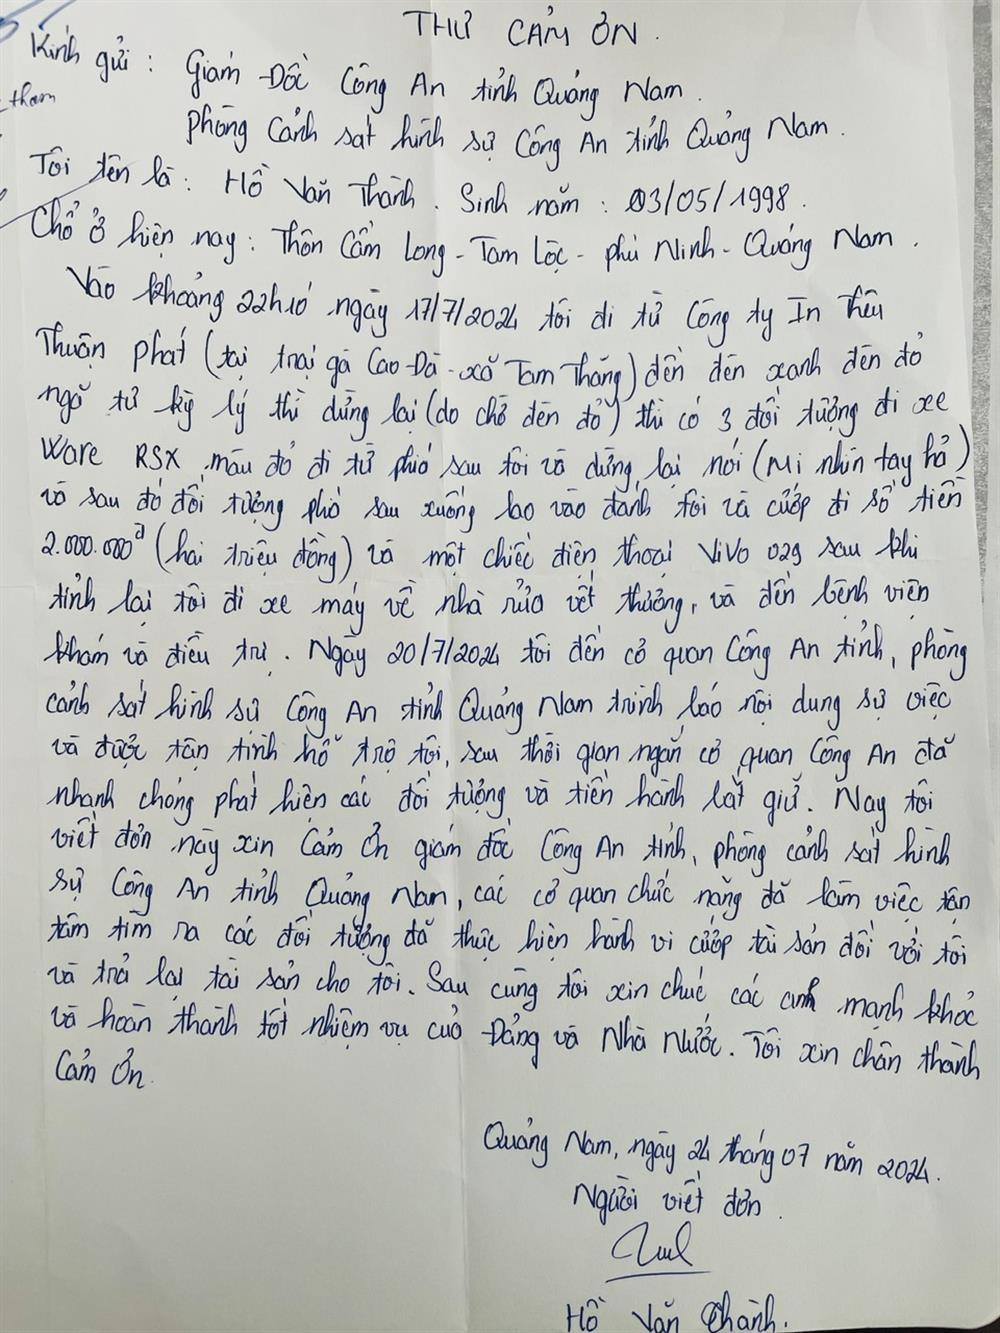 THƯ CẢM ƠN.
Kính gửi: Giám Đốc Công An tỉnh Quảng Nam.
tham
Phòng Cảnh sát hình sự Công An tỉnh Quảng Nam.
Tôi tên là: Hồ Văn Thành. Sinh năm: 03/05/1998.
Chổ ở hiện nay: Thôn Cẩm Long - Tam Lộc - phú Ninh - Quảng Nam.
Vào khoảng 22h10 ngày 17/7/2024 tôi đi từ Công ty In Thêu
Thuận phát (tại trại gà Cao-Dã-xã Tam Thăng) đến đèn xanh đèn đỏ
ngã tư kỳ lý thì dừng lại (do chờ đèn đỏ) thì có 3 đối tượng đi xe
Ware RSX màu đỏ đi từ phía sau tôi và dừng lại nói (Mi nhìn tay hả)
và sau đó đối tượng phía sau xuống lao vào đánh tôi và cướp đi số tiền
2.000.000đ (hai triệu đồng) và một chiếc điện thoại ViVo 029 sau khi
tỉnh lại tôi đi xe máy về nhà rửa vết thương, và đến bệnh viện
khám và điều trị. Ngày 20/7/2024 tôi đến cơ quan Công An tỉnh, phòng
cảnh sát hình sự Công An tỉnh Quảng Nam trình báo nội dung sự việc
và được tận tình hỗ trợ tôi, sau thời gian ngắn cơ quan Công An đã
nhanh chóng phát hiện các đối tượng và tiến hành bắt giữ. Nay tôi
viết đơn này xin Cảm Ơn giám đốc Công An tỉnh, phòng cảnh sát hình
sự Công An tỉnh Quảng Nam, các cơ quan chức năng đã làm việc tận
tâm tìm ra các đối tượng đã thực hiện hành vi cướp tài sản đối với tôi
và trả lại tài sản cho tôi. Sau cùng tôi xin chúc các anh mạnh khỏe
và hoàn thành tốt nhiệm vụ của Đảng và Nhà Nước. Tôi xin chân thành
Cảm Ơn.
Quảng Nam, ngày 24 tháng 07 năm 2024.
Người viết đơn.
Hồ Văn Thành.